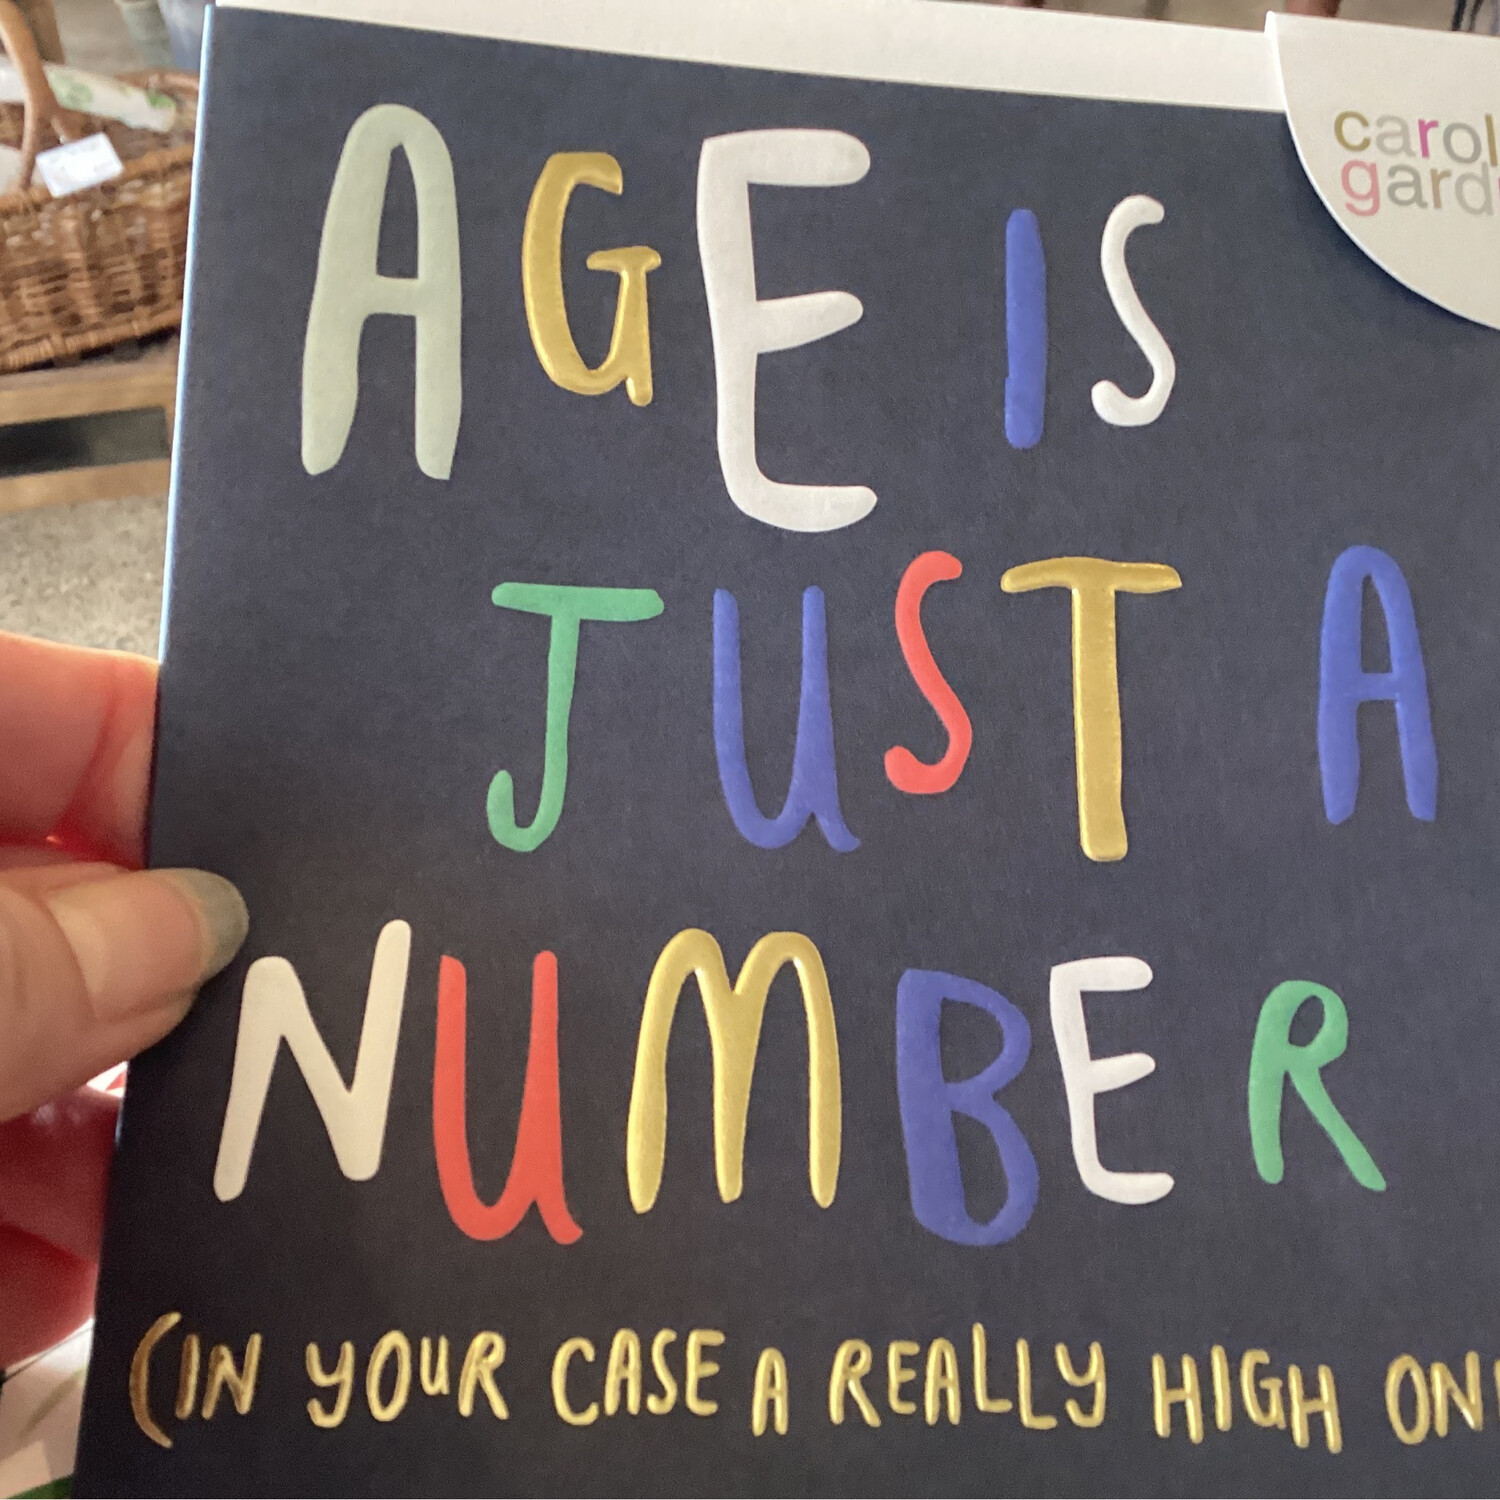 AGE IS
JUST A
NUMBER
(IN YOUR CASE A REALLY HIGH ON
carol
gard